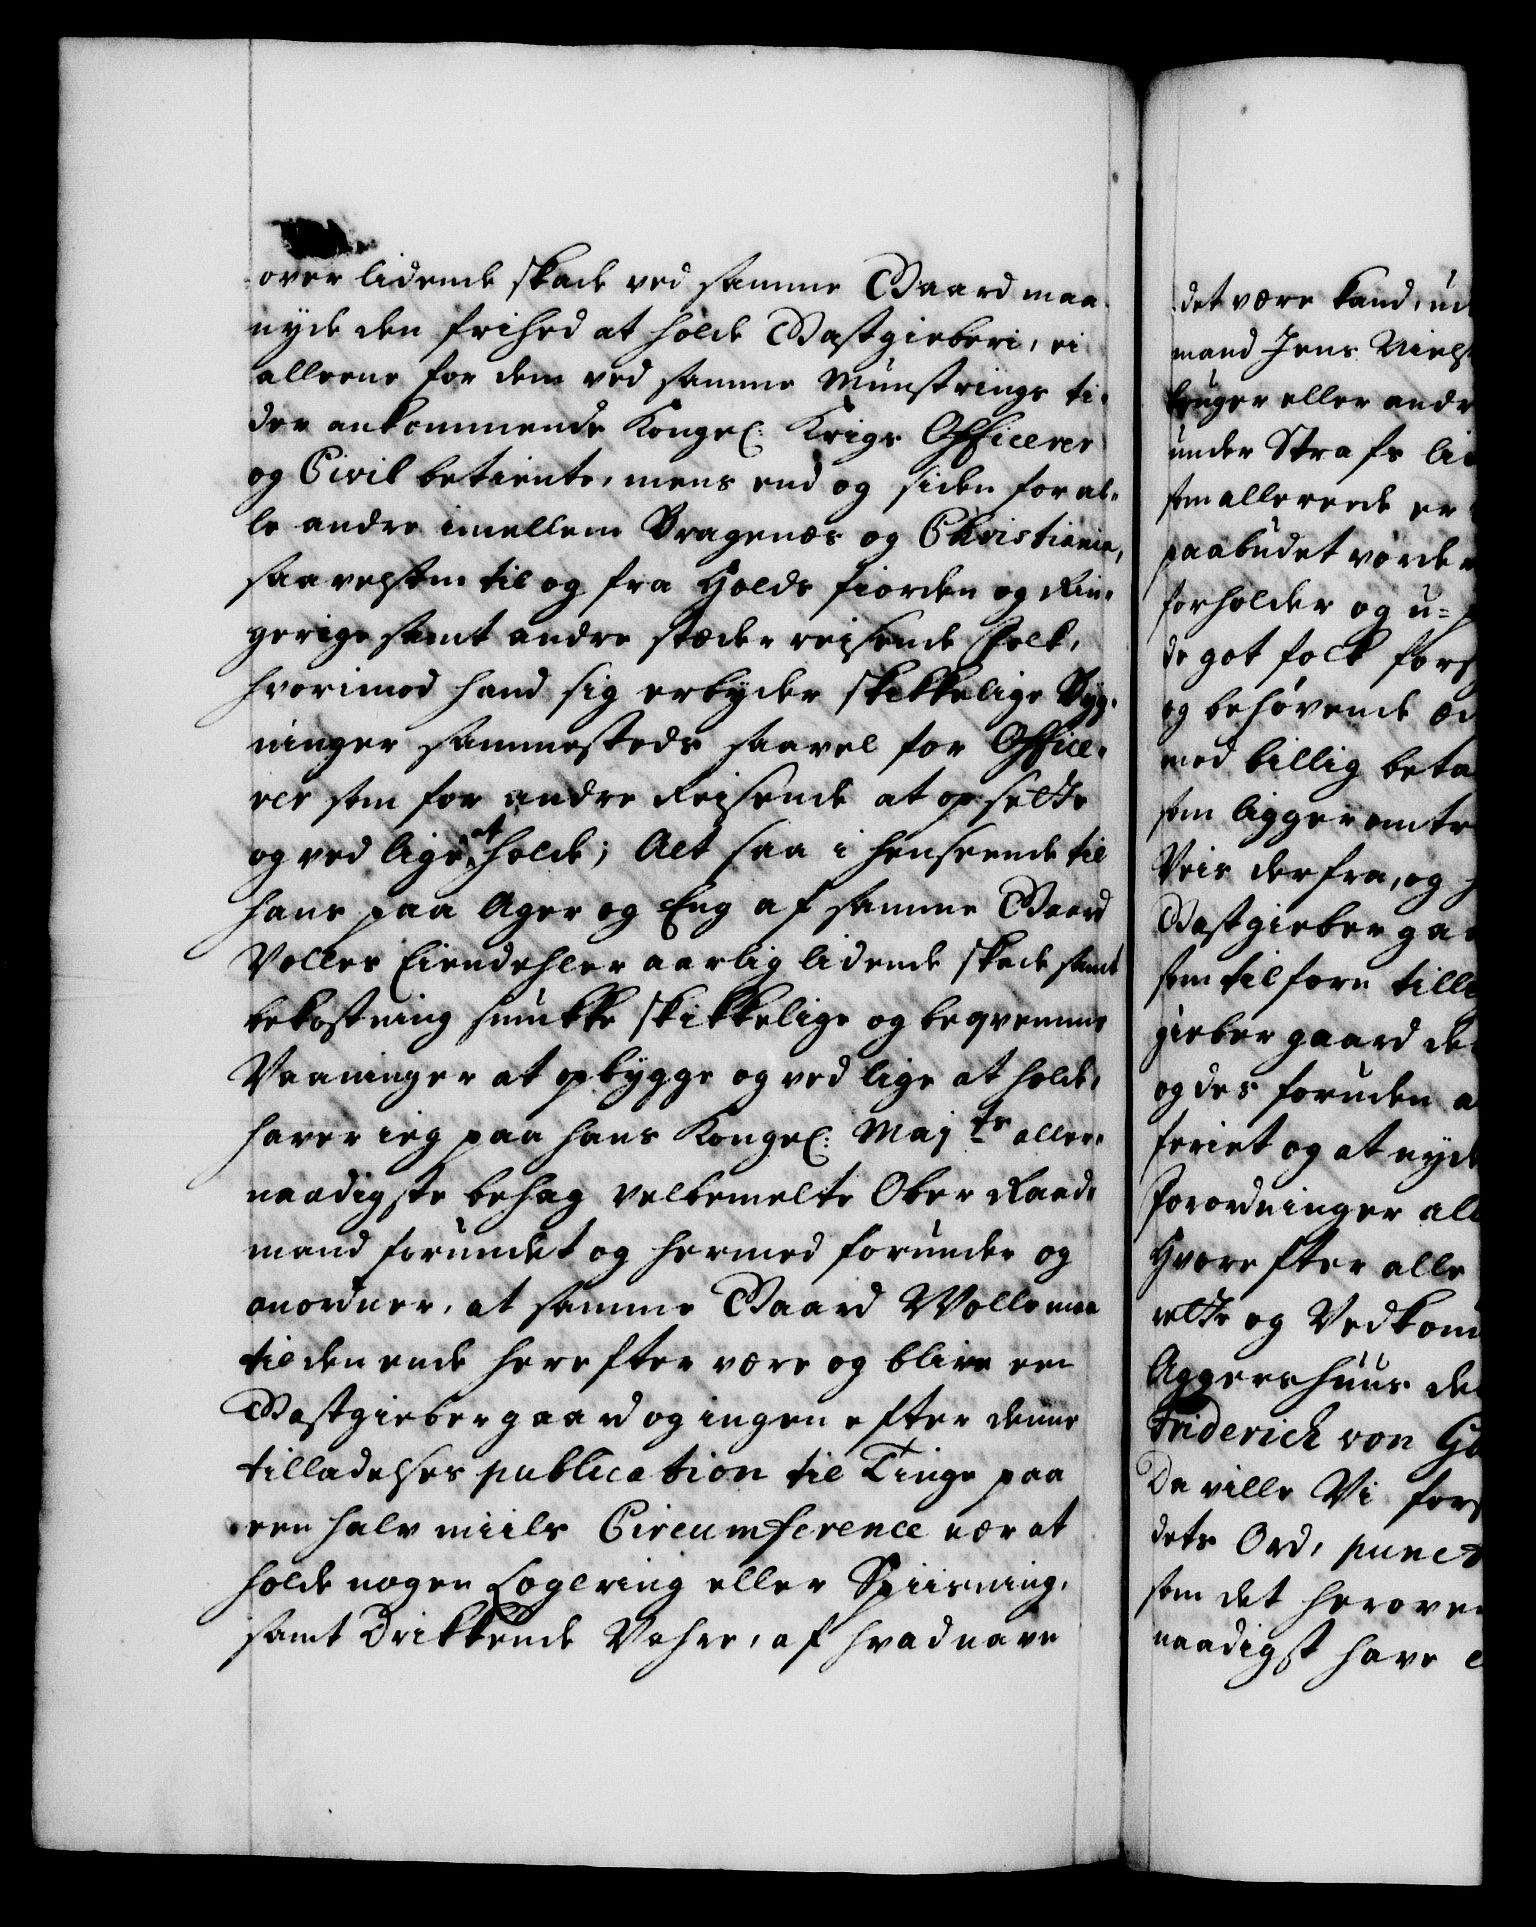 over lidende skade ved samme Gaard maa
nyde den frihed at holde Gastgieberi, ei
alleene for dem ved samme Munstrings ti-
der ankommende Kongel: Krigs Officerer
og Civil betiente, mens end og siden for al-
le andre imellem Bragenæs og Christiania,
saavelsom til og fra Holds fiorden og Rin-
gerige samt andre stæder reisende Folk,
hvorimod hand sig erbyder skikkelige Byg-
ninger sammesteds saavel for Office-
rer som for andre Reisende at opsette
og ved lige at holde; Alt saa i henseende til
hans paa Ager og Eng af samme Gaard
Volles Eiendehler aarlig lidende skade samt
bekostning smukke skikkelige og beqvemme
Vaaninger at opbygge og ved lige at holde,
haver ieg paa hans Kongel: Majts aller-
naadigste behag velbemelte Ober Raad-
mand forundet og hermed forunder og
anordner, at samme Gaard Wolle maa
til den ende herefter være og blive een
Gastgiebergaard og ingen efter denne
tilladelses publication til Tinge paa
een halv miils Circumference nær at
holde nogen Logering eller Spiisning,
samt Drikkende Vahre, af hvad navn
det være kand, ud
mand Jens Niels
bruger eller andr
under Straf
som allereede er
paabudet vorder
forholder og u-
de got folk fors
og behøvende
med billig beta
som ligger omtr
Veis derfra, og h
Gastgieber gaa
som tilforn till
gieber gaard de
og des foruden a
feriet og at nyde
Forordninger all
Hvorefter alle
rette og Vedkom
Aggershuus de
Friderich von Ga
Da ville Vi fors
dets Ord, punct
som det heroven
naadigst have